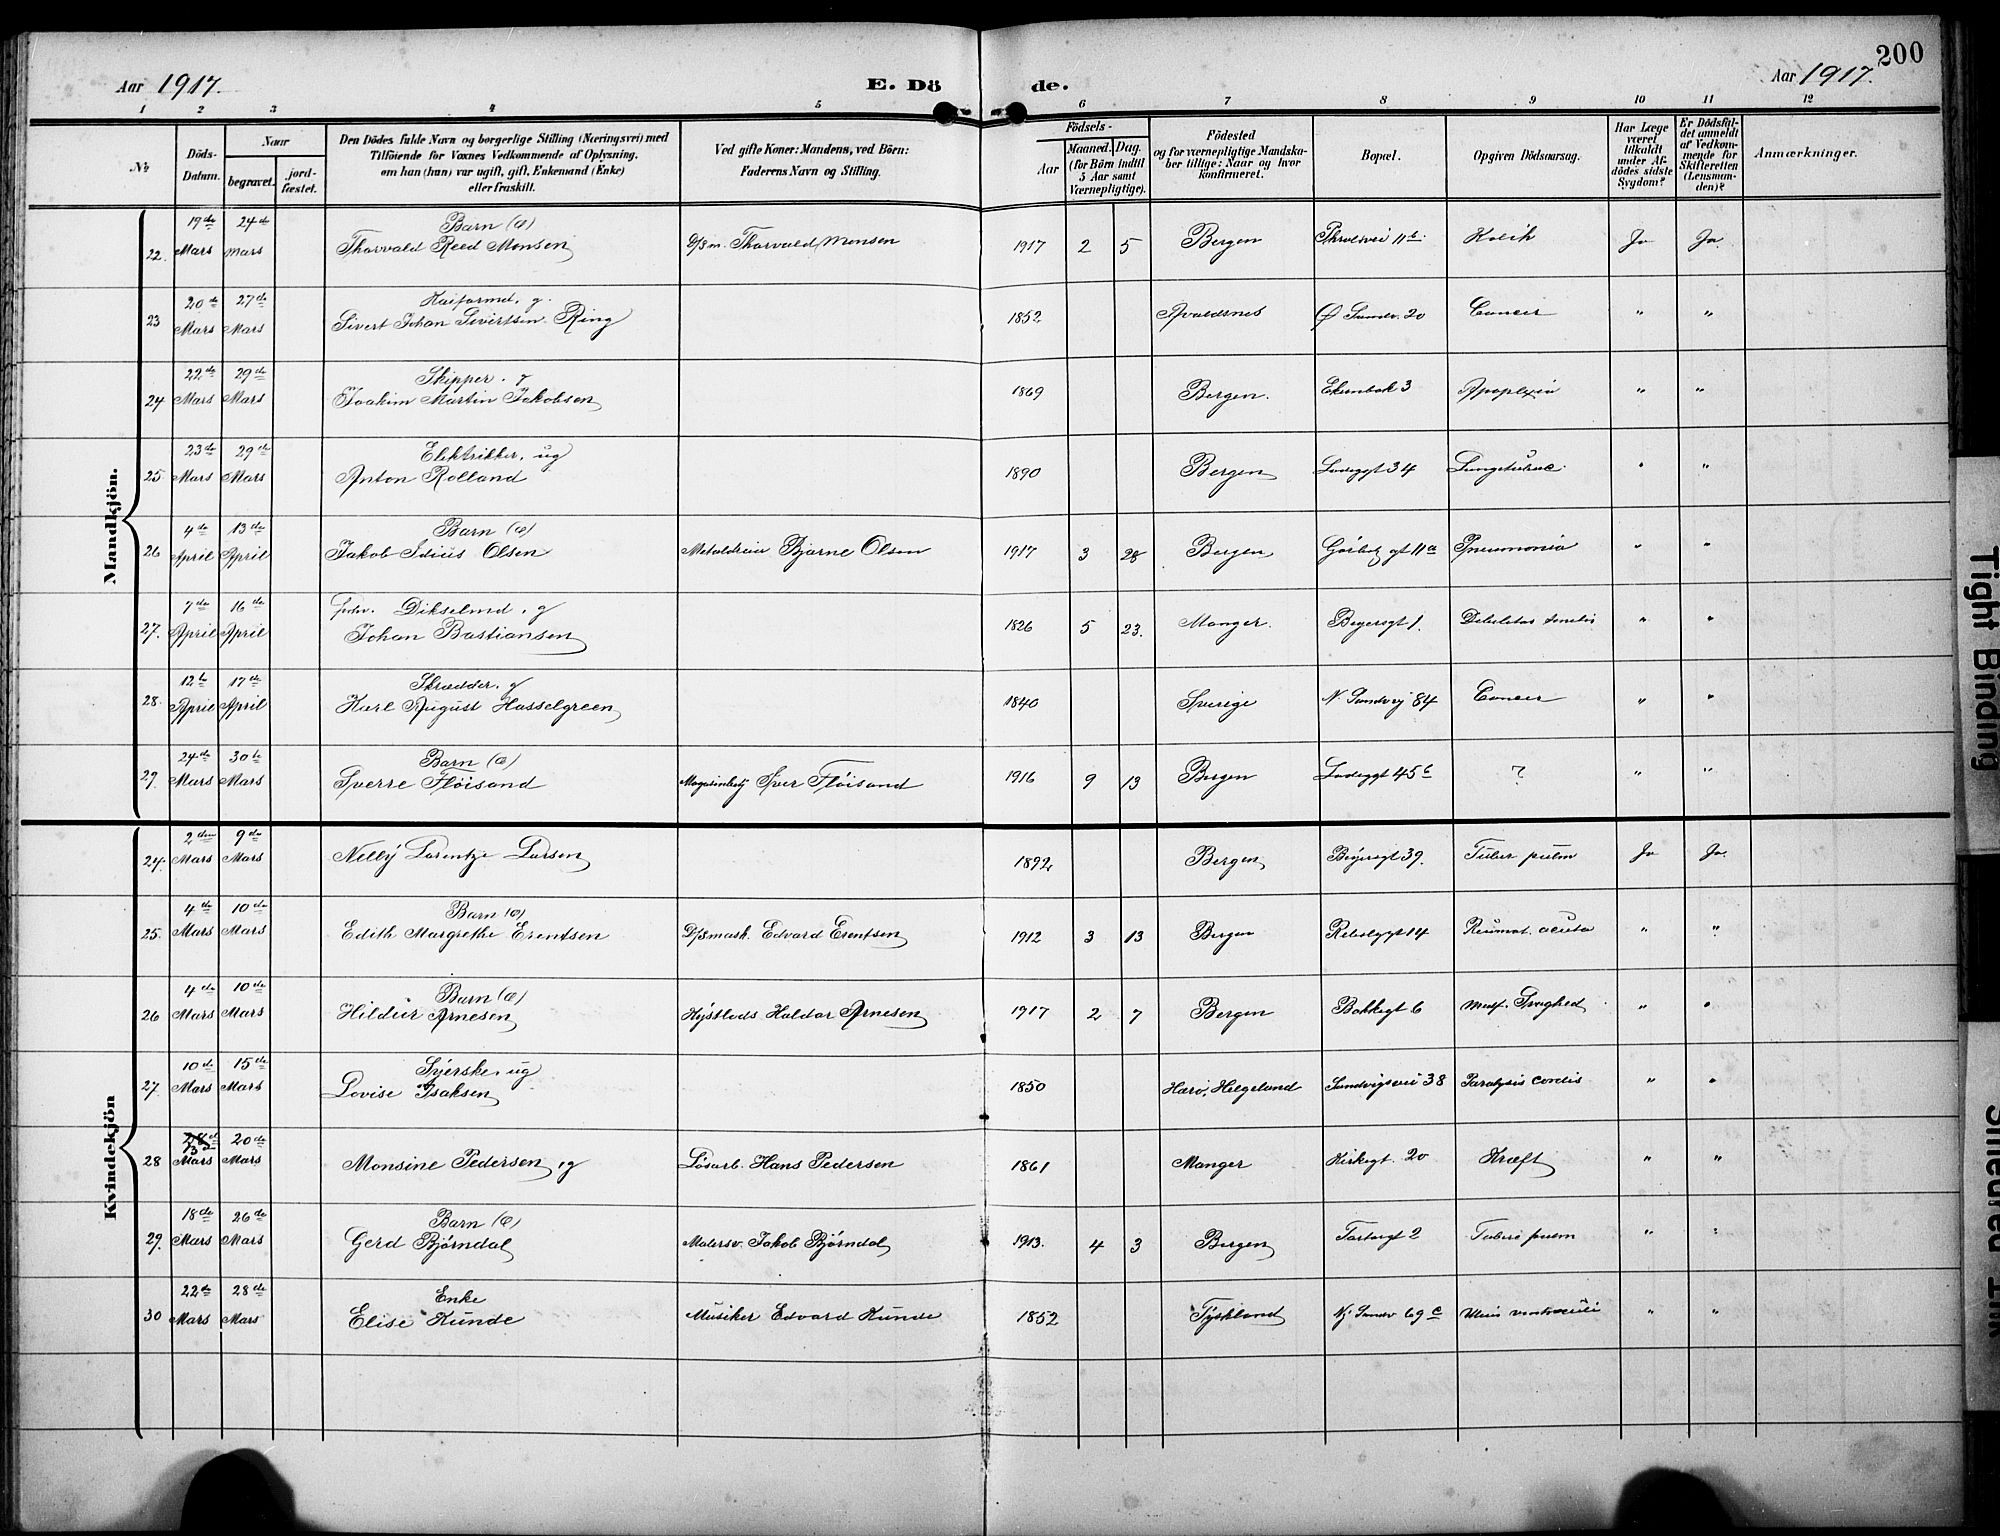 200
Aar 1917. E. Dö de. Aar 1917.
1 2 3 4 5 6 7 8 9 10 11 12
No Döds-Datum. Naar begravet. jord-fæstet. Den Dödes fulde Navn og borgerlige Stilling (Næringsvei) med Tilföiende for Voxnes Vedkommende af Oplysning, om han (hun) var ugift, gift, Enkemand (Enke) eller fraskilt. Ved gifte Koner: Mandens, ved Börn: Faderens Navn og Stilling. Födsels- Aar Maaned. Dag. (for Börn indtil 5 Aar samt Værnepligtige). Födested og for værnepligtige Mandskaber tillige: Naar og hvor konfirmeret. Bopæl. Opgiven Dödsaarsag. Har Læge været tilkaldt under Afdödes sidste Sygdom? Er Dödsfaldet anmeldt af Vedkommende for Skifteretten (Lensmanden)? Anmærkninger.
Mandkjön.
22. 19de Mars 24de Mars Barn (æ) Thorvald Reed Monsen D/Sm. Thorvald Monsen 1917 2 5 Bergen 11b Kolik Ja Ja.
23 20de Mars 27de Mars Kaiformd, g. Sivert Johan Sivertsen Ring 1852 Avaldsnes Ø Sandv. 20 Cancer " "
24 22de Mars 29de Mars Skipper. g Joakim Martin Jakobsen 1869 Bergen. Ekenbak 3 Apoplexia " "
25 23de Mars 29de Mars Elektrikker, ug Anton Rolland 1890 Bergen Ladeggt 34 Lungetuberc. " "
26 4de April 13de April Barn (æ) Jakob Idius Olsen Bjarne Olsen 1917 3 28 Bergen gt 11a Pneumonia " "
27. 7de April 16de April forhv. Dikselmd, g Johan Bastiansen 1826 5 23. Manger. Beyersgt 1. Debilitas senilis " "
28. 12te April 17de April Skrædder, g Karl August Hasselgreen 1840 Sverige N. Sandvg 84 Cancer " "
29. 24de Mars 30te Mars Barn (æ) Sverre Fløisand Iver Fløisand 1916 9 13 Bergen Ladeggt 45b ? " "
Kvindekjön
24. 2den Mars 9de Mars Nelly Larentze Larsen 1892 Bergen Beyersgt 39. Tuber pulm Ja Ja.
25. 4de Mars 10de Mars Barn (æ) Edith Margrethe Erentsen D/Smask. Edvard Erentsen 1912 3 13 Bergen 14 Reumat. acuta " "
26 4de Mars 10de Mars Barn (æ) Hildur Arnesen Haldor Arnesen 1917 2 7 Bergen Bakkegt 6 Medf. Svaghed " "
27. 10de Mars 15de Mars Syerske, ug Lovise Isaksen 1850 Herø, Helgeland Sandvigsvei 38 Paralysis cordis " "
28 13de Mars 20de Mars Monsine Pedersen, g Løsarb. Hans Pedersen 1861 Manger Kirkegt. 20 Kræft " "
29. 18de Mars 26de Mars Barn (æ) Gerd Bjørndal Malersv. Jakob Bjørndal 1913. 4 3 Bergen 2 Tuberc pulm " "
30 22de Mars 28de Mars Enke Elise Kunde Musiker Edvard Kunde 1852 Tyskland Ny Sandv 69c Ulcus ventriculi " "
Tight Binding
Smeared Ink